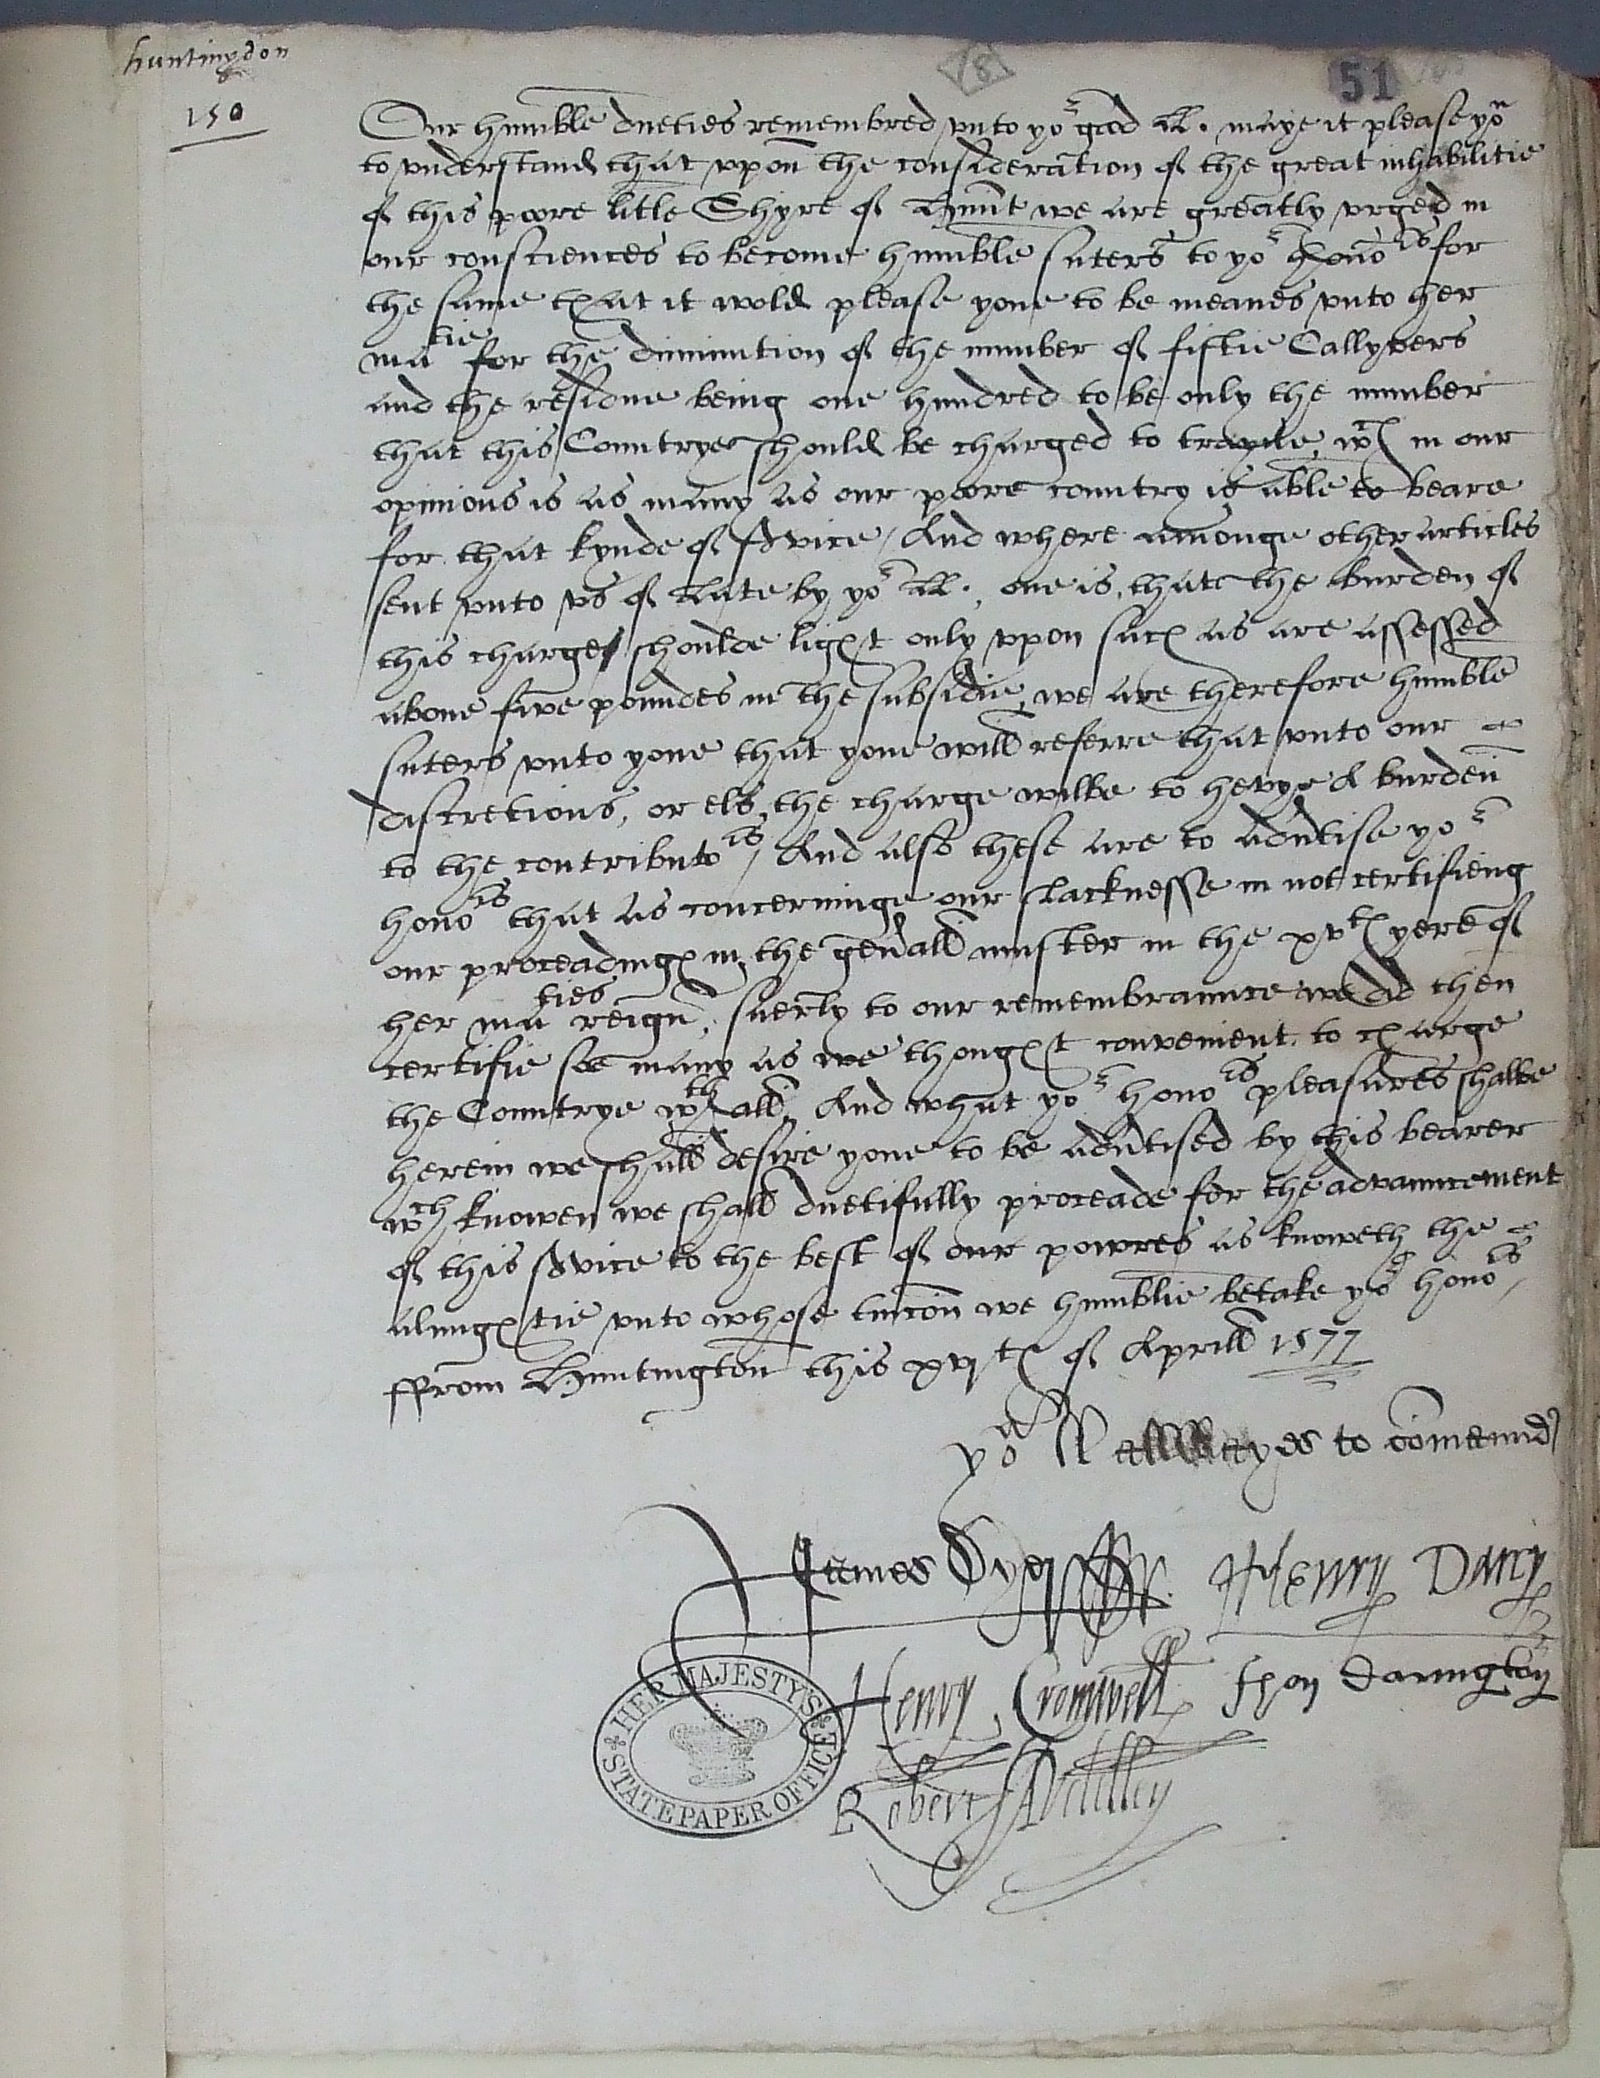 huntingdon
150
18
51
Our humble dueties remembred vnto yor good LL. maye it please you
to vnderstand that vpon the consideration of the great inhabilitie
of this poore litle Shyre of Hunt we are greatly vrged in
our consciences to become humble suters to yor honors for
the same that it wold please youe to be meanes vnto her
matie for the diminution of the number of fiftie Callyvers
and the residue being one hundred to be only the number
that this Countrye should be charged to trayne, wch in our
opinions is as many as our poore country is able to beare
for that kynde of service / And where amonge other articles
sent vnto vs of late by yor LL., one is, that the burden of
this charge shoulde light only vpon such as are assessed
aboue five poundes in the subsidie, we are therefore humble
suters vnto youe that youe will referre that vnto our
discretions, or els, the charge wilbe to hevye a burden
to the contributors / And also these are to advtise yor
honors that as concerninge our slacknesse in not certifieng
our proceadings in the genall muster in the xvth yere of
her maties reign, suerly to our remembraunce we did then
certifie soe many as we thought convenient to charge
the Countrye wth all. And what yor honors pleasures shalbe
herein we shall desire youe to be advtised by this bearer
wch knowen we shall duetifully proceade for the advauncement
of this service to the best of our powres as knoweth the
almightie vnto whose tuicon we humblie betake yor honors /
ffrom Huntington this xvjth of Aprill 1577
yor LL allwayes to comaund
James Dyer Henry Darcy
Henry Cromwell Jhon Dorrington
Robert
HER MAJESTY'S
STATE PAPER OFFICE